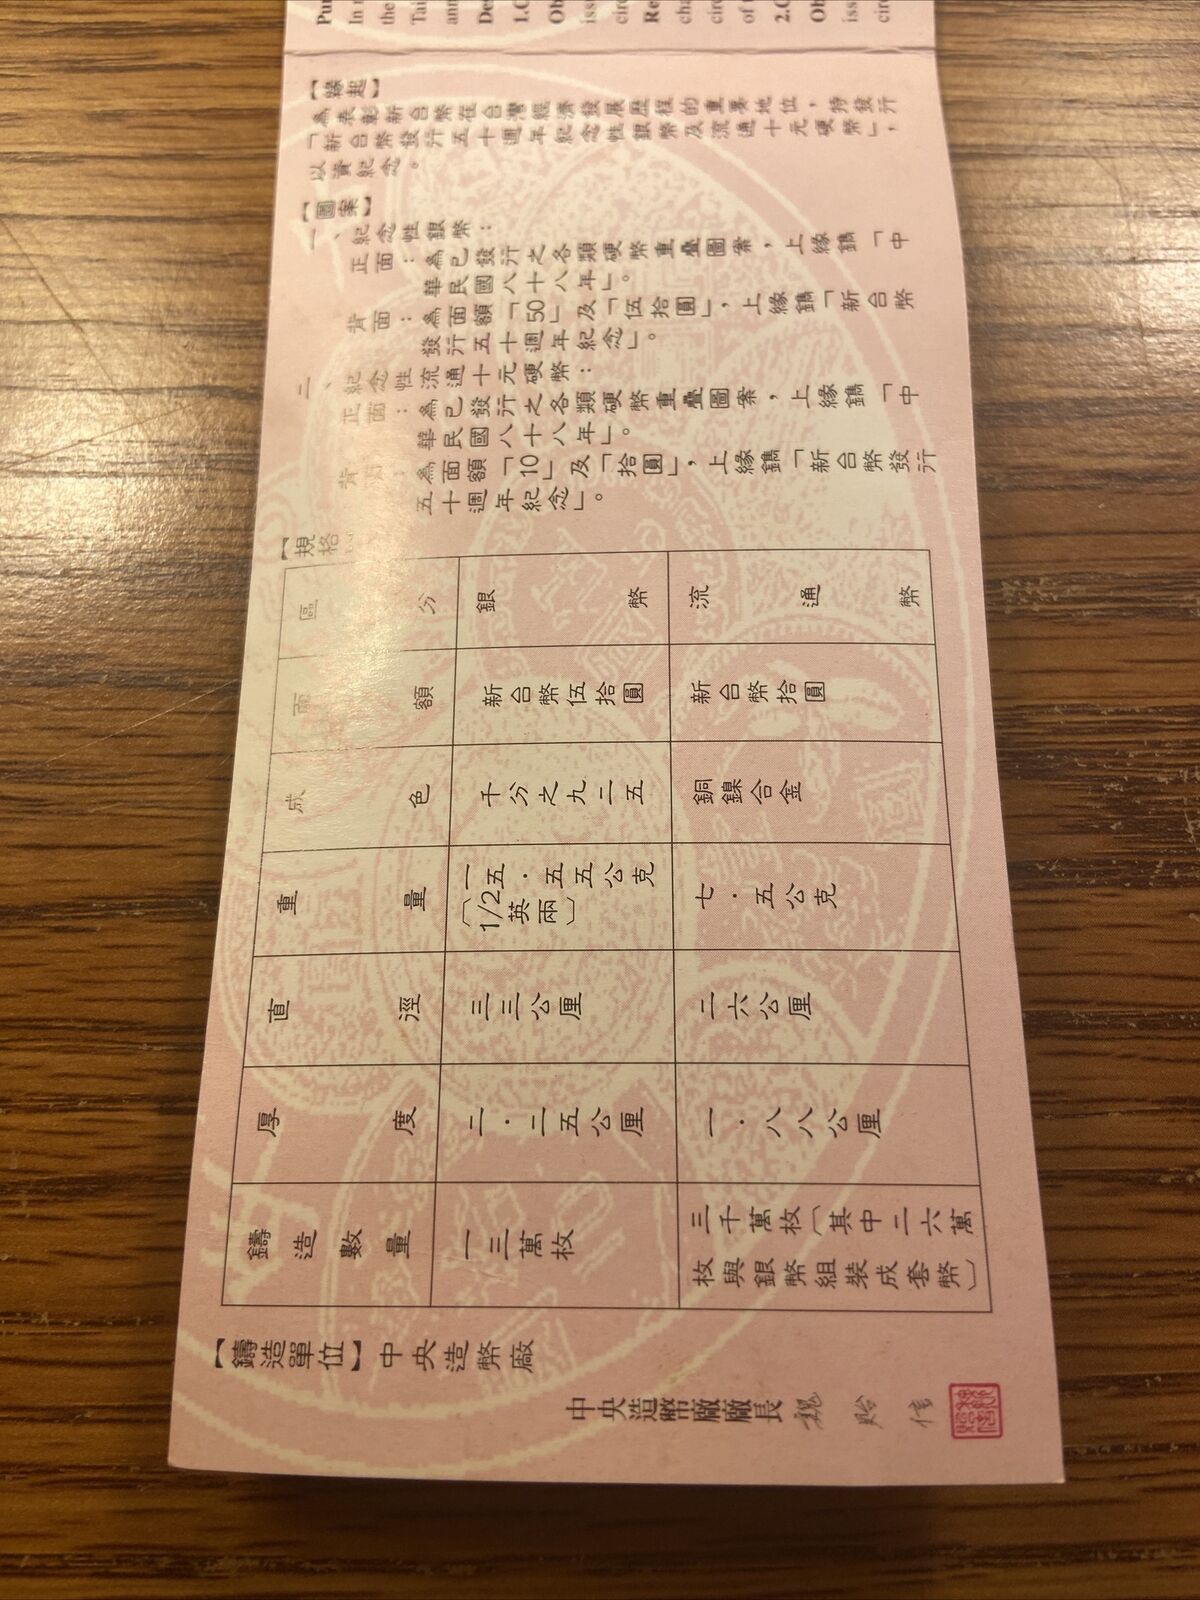 the
Tai
1.C
Ob
iss
circ
Re
cha
circ
of t
2.C
Ob
iss
circ
【緣起】
為表彰新台幣在台灣經濟發展歷程的重要地位，特發行
「新台幣發行五十週年紀念性銀幣及流通十元硬幣」，
以資紀念。
【圖案】
一、紀念性銀幣：
正面：為已發行之各類硬幣重疊圖案，上緣鐫「中
華民國八十八年」。
背面：為面額「50」及「伍拾圓」，上緣鐫「新台幣
發行五十週年紀念」。
二、紀念性流通十元硬幣：
正面：為已發行之各類硬幣重疊圖案，上緣鐫「中
華民國八十八年」。
背 ：為面額「10」及「拾圓」，上緣鐫「新台幣發行
五十週年紀念」。
【規格
區分 銀幣 流通幣
面額 新台幣伍拾圓 新台幣拾圓
成色 千分之九二五 銅鎳合金
重量 一五．五五公克 七．五公克
（1/2英兩）
直徑 三三公厘 二六公厘
厚度 二．二五公厘 一．八八公厘
鑄造數量 一三萬枚 三千萬枚（其中二六萬
枚與銀幣組裝成套幣）
【鑄造單位】中央造幣廠
中央造幣廠廠長 魏貽信